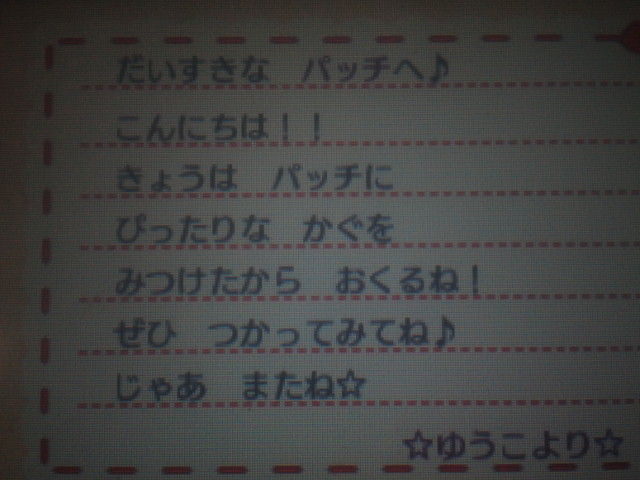 だいすきな　パッチへ♪
こんにちは！！
きょうは　パッチに
ぴったりな　かぐを
みつけたから　おくるね！
ぜひ　つかってみてね♪
じゃあ　またね☆
☆ゆうこより☆